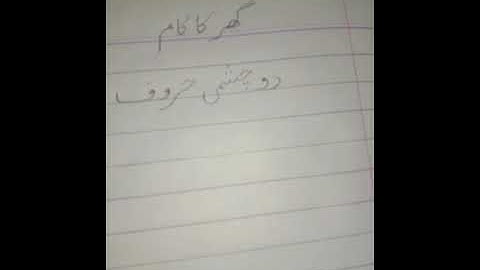 گھر کا کام
دو چشمی حروف